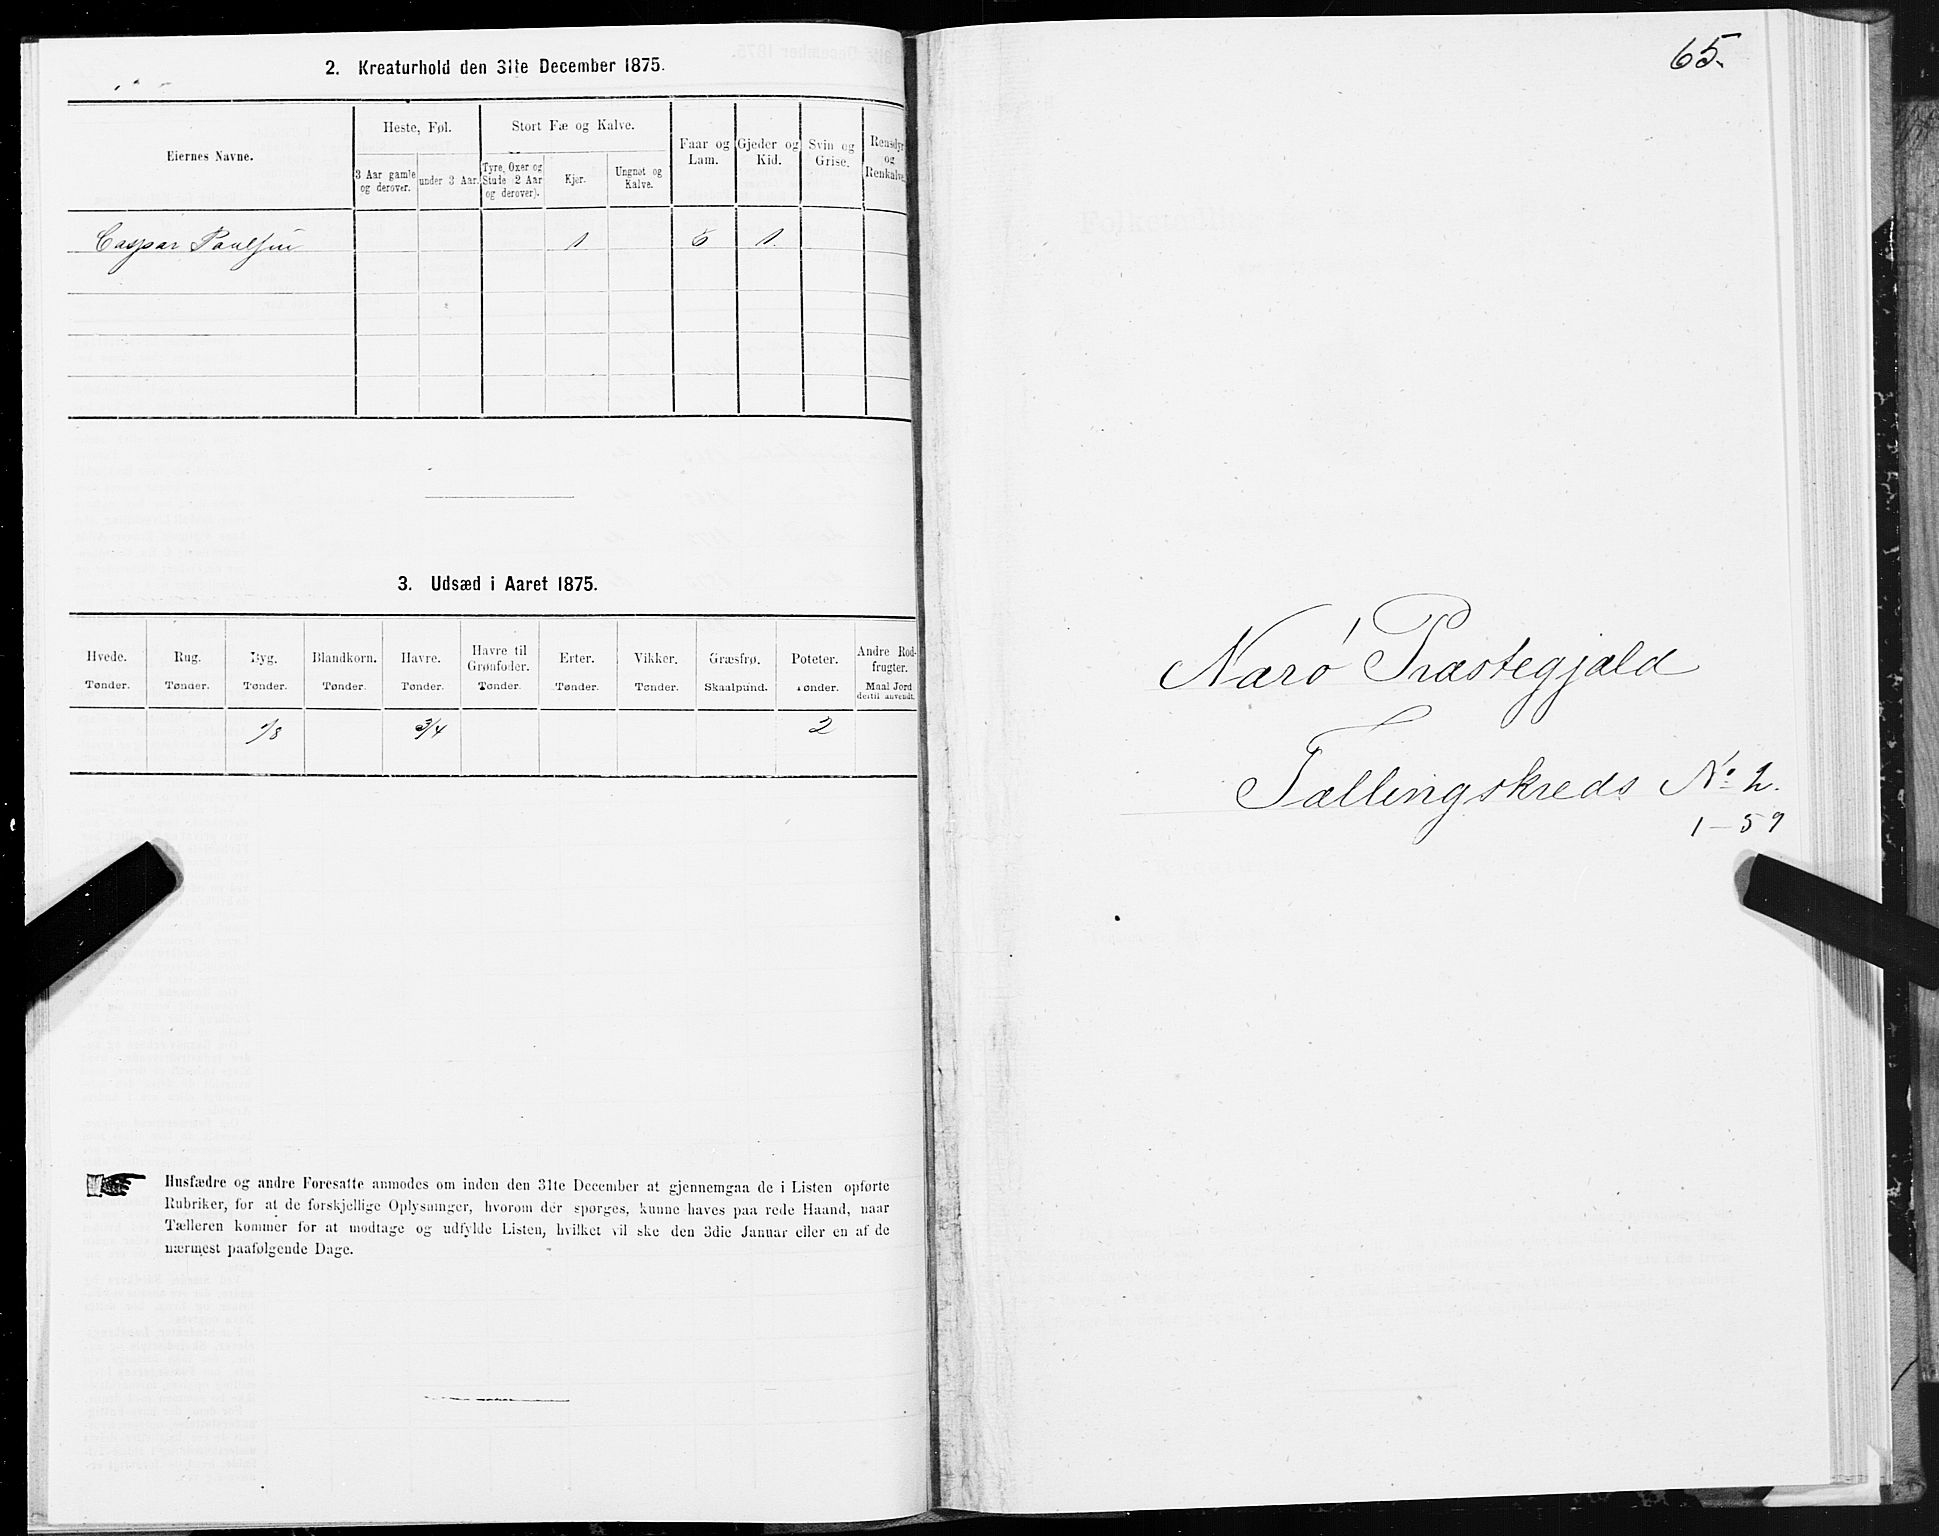 2. Kreaturhold den 31te December 1875.
Eiernes Navne.
Heste, Føl.
Stort Fæ og Kalve.
Faar og Lam.
Gjeder og Kid.
Svin og Grise.
Rensdyr og Renkalve.
3 Aar gamle og derover.
under 3 Aar.
Tyre, Oxer og Stude (2 Aar og derover).
Kjør.
Ungnøt og Kalve.
Caspar Paulsen 1 6 1.
3. Udsæd i Aaret 1875.
Hvede. Rug. Byg. Blandkorn. Havre. Havre til Grønfoder. Erter. Vikker. Græsfrø. Poteter. Andre Rodfrugter.
Tønder. Tønder. Tønder. Tønder. Tønder. Tønder. Tønder. Tønder. Skaalpund. Tønder. Maal Jord dertil anvendt.
1/8 3/4 2
Husfædre og andre Foresatte anmodes om inden den 31te December at gjennemgaa de i Listen opførte
Rubriker, for at de forskjellige Oplysninger, hvorom der spørges, kunne haves paa rede Haand, naar
Tælleren kommer for at modtage og udfylde Listen, hvilket vil ske den 3die Januar eller en af de
nærmest paafølgende Dage.
65.
Nærø Præstegjæld
Tællingskreds No 2.
1-59